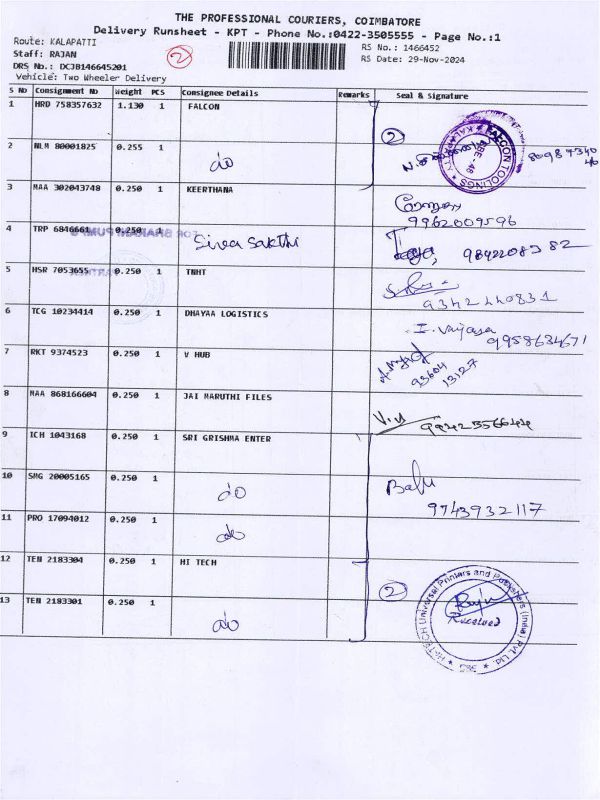 THE PROFESSIONAL COURIERS, COIMBATORE
Delivery Runsheet - KPT - Phone No.:0422-3505555 - Page No.:1
Route: KALAPATTI
RS No.: 1466452
Staff: RAJAN
2
RS Date: 29-Nov-2024
DRS No.: DCJB146645201
Vehicle: Two Wheeler Delivery
S No Consignment No Weight PCS Consignee Details Remarks Seal & Signature
1 HRD 758357632 1.130 1 FALCON
2
FALCON TOOLINGS
2 NLM 80001825 0.255 1 do
3 MAA 302043748 0.250 1 KEERTHANA
9962009596
4 TRP 6846661 0.250 1 Siva Sakthi
9842208382
5 HSR 7053655 0.250 1 TNHT
9342440831
6 TCG 10234414 0.250 1 DHAYAA LOGISTICS
9958634671
7 RKT 9374523 0.250 1 V HUB
93604
13127
8 MAA 868166604 0.250 1 JAI MARUTHI FILES
9942356644
9 ICH 1043168 0.250 1 SRI GRISHMA ENTER
10 SMG 20005165 0.250 1 do
Babu
9743932117
11 PRO 17094012 0.250 1 do
12 TEN 2183304 0.250 1 HI TECH
2
HI-TECH Universal Printers and Publishers (India) Pvt. Ltd.
Received
13 TEN 2183301 0.250 1 do